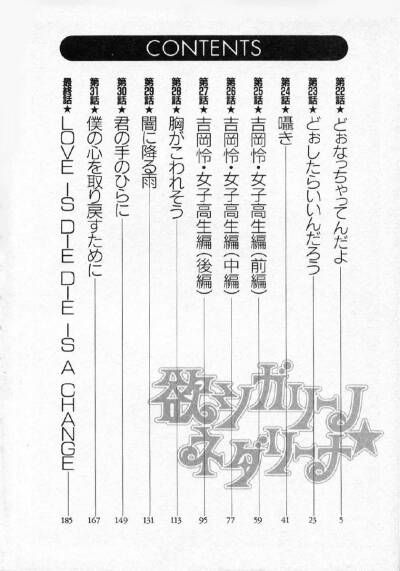 CONTENTS
第22話★どぉなっちゃってんだよ 5
第23話★どぉしたらいいんだろう 23
第24話★囁き 41
第25話★吉岡怜・女子高生編(前編) 59
第26話★吉岡怜・女子高生編(中編) 77
第27話★吉岡怜・女子高生編(後編) 95
第28話★胸がこわれそう 113
第29話★闇に降る雨 131
第30話★君の手のひらに 149
第31話★僕の心を取り戻すために 167
最終話★LOVE IS DIE DIE IS A CHANGE 185
欲シガリーノ
ネダリーナ★